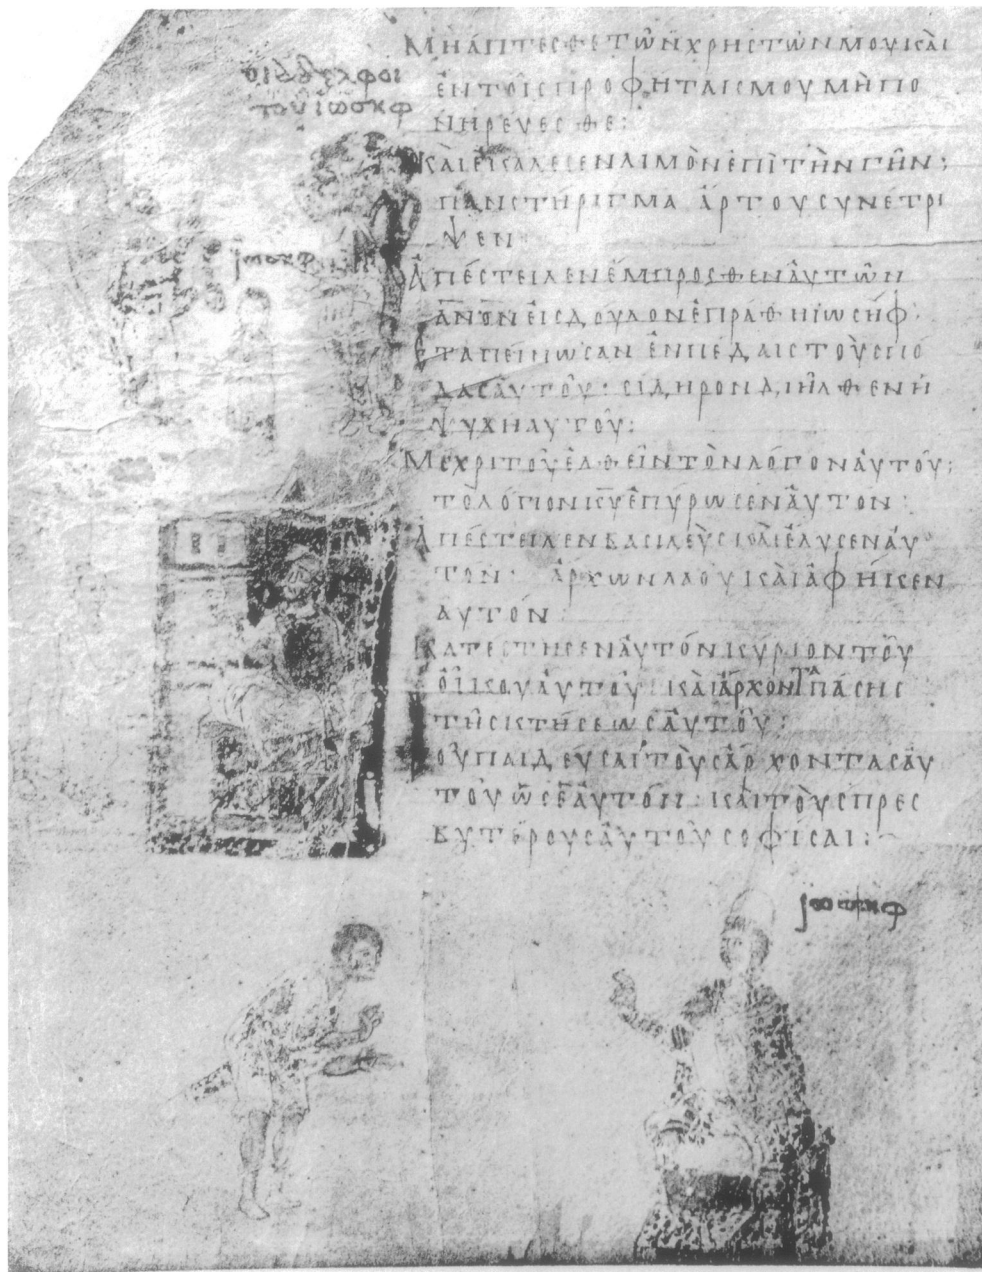 οἱ ἀδελφοι
του ἰωσηφ
ἰωσηφ
ΜΗ ἉΠΤΕΣΘΕ ΤῶΝ ΧΡΗΣΤῶΝ ΜΟΥ ΚΑΙ
ἘΝ ΤΟΙΣ ΠΡΟΦΗΤΑΙΣ ΜΟΥ ΜῊ ΠΟ
ΝΗΡΕΥΕΣΘΕ:
ΚΑῚ ἘΚΑΛΕΣΕΝ ΛΙΜῸΝ ἘΠῚ ΤῊΝ ΓΗ͂Ν:
ΠΑΝ ΣΤΉΡΙΓΜΑ ἌΡΤΟΥ ΣΥΝΈΤΡΙ
ΨΕΝ
ἈΠΈΣΤΕΙΛΕΝ ἜΜΠΡΟΣΘΕΝ ΑΥΤΩ͂Ν
ΑΝΟΝ ΕἸΣ ΔΟΥΛΟΝ ἘΠΡΆΘΗ ἸΩΣΉΦ·
ἘΤΑΠΕΊΝΩΣΑΝ ἘΝ ΠΕΔΑΙΣ ΤΟῪΣ ΠΟ
ΔΑΣ ΑΥΤΟΥ͂: ΣΙΔΗΡΟΝ ΔΙΗΛΘΕΝ Ἡ
ΨΥΧΗ ΑΥΤΟΥ͂:
ΜΕΧΡΙ ΤΟΥ͂ ἘΛΘΕΙ͂Ν ΤῸΝ ΛΌΓΟΝ ΑΥΤΟΥ͂:
ΤΟ ΛΌΓΙΟΝ ΚΥ ἘΠΎΡΩΣΕΝ ΑΥΤΟΝ:
ἈΠΈΣΤΕΙΛΕΝ ΒΑΣΙΛΕῪΣ ΚΑῚ ἜΛΥΣΕΝ ΑΥ
ΤΟΝ: ἌΡΧΩΝ ΛΑΟΥ ΚΑῚ ἈΦΗ͂ΚΕΝ
ΑΥΤΌΝ:
ΚΑΤΈΣΤΗΣΕΝ ΑΥΤΌΝ ΚΥΡΙΟΝ ΤΟΥ͂
ΟἼΚΟΥ ΑΥΤΟΥ͂: ΚΑῚ ἌΡΧΟΝΤΑ ΠΆΣΗΣ
ΤΗ͂Σ ΚΤΉΣΕΩΣ ΑΥΤΟΥ͂:
ΤΟΥ ΠΑΙΔΕΥΣΑΙ ΤΟῪΣ ἌΡΧΟΝΤΑΣ ΑΥ
ΤΟΥ ὩΣ ἙΑΥΤΌΝ: ΚΑῚ ΤΟῪΣ ΠΡΕΣ
ΒΥΤΈΡΟΥΣ ΑΥΤΟΥ͂ ΣΟΦΊΣΑΙ:
ἰωσηφ